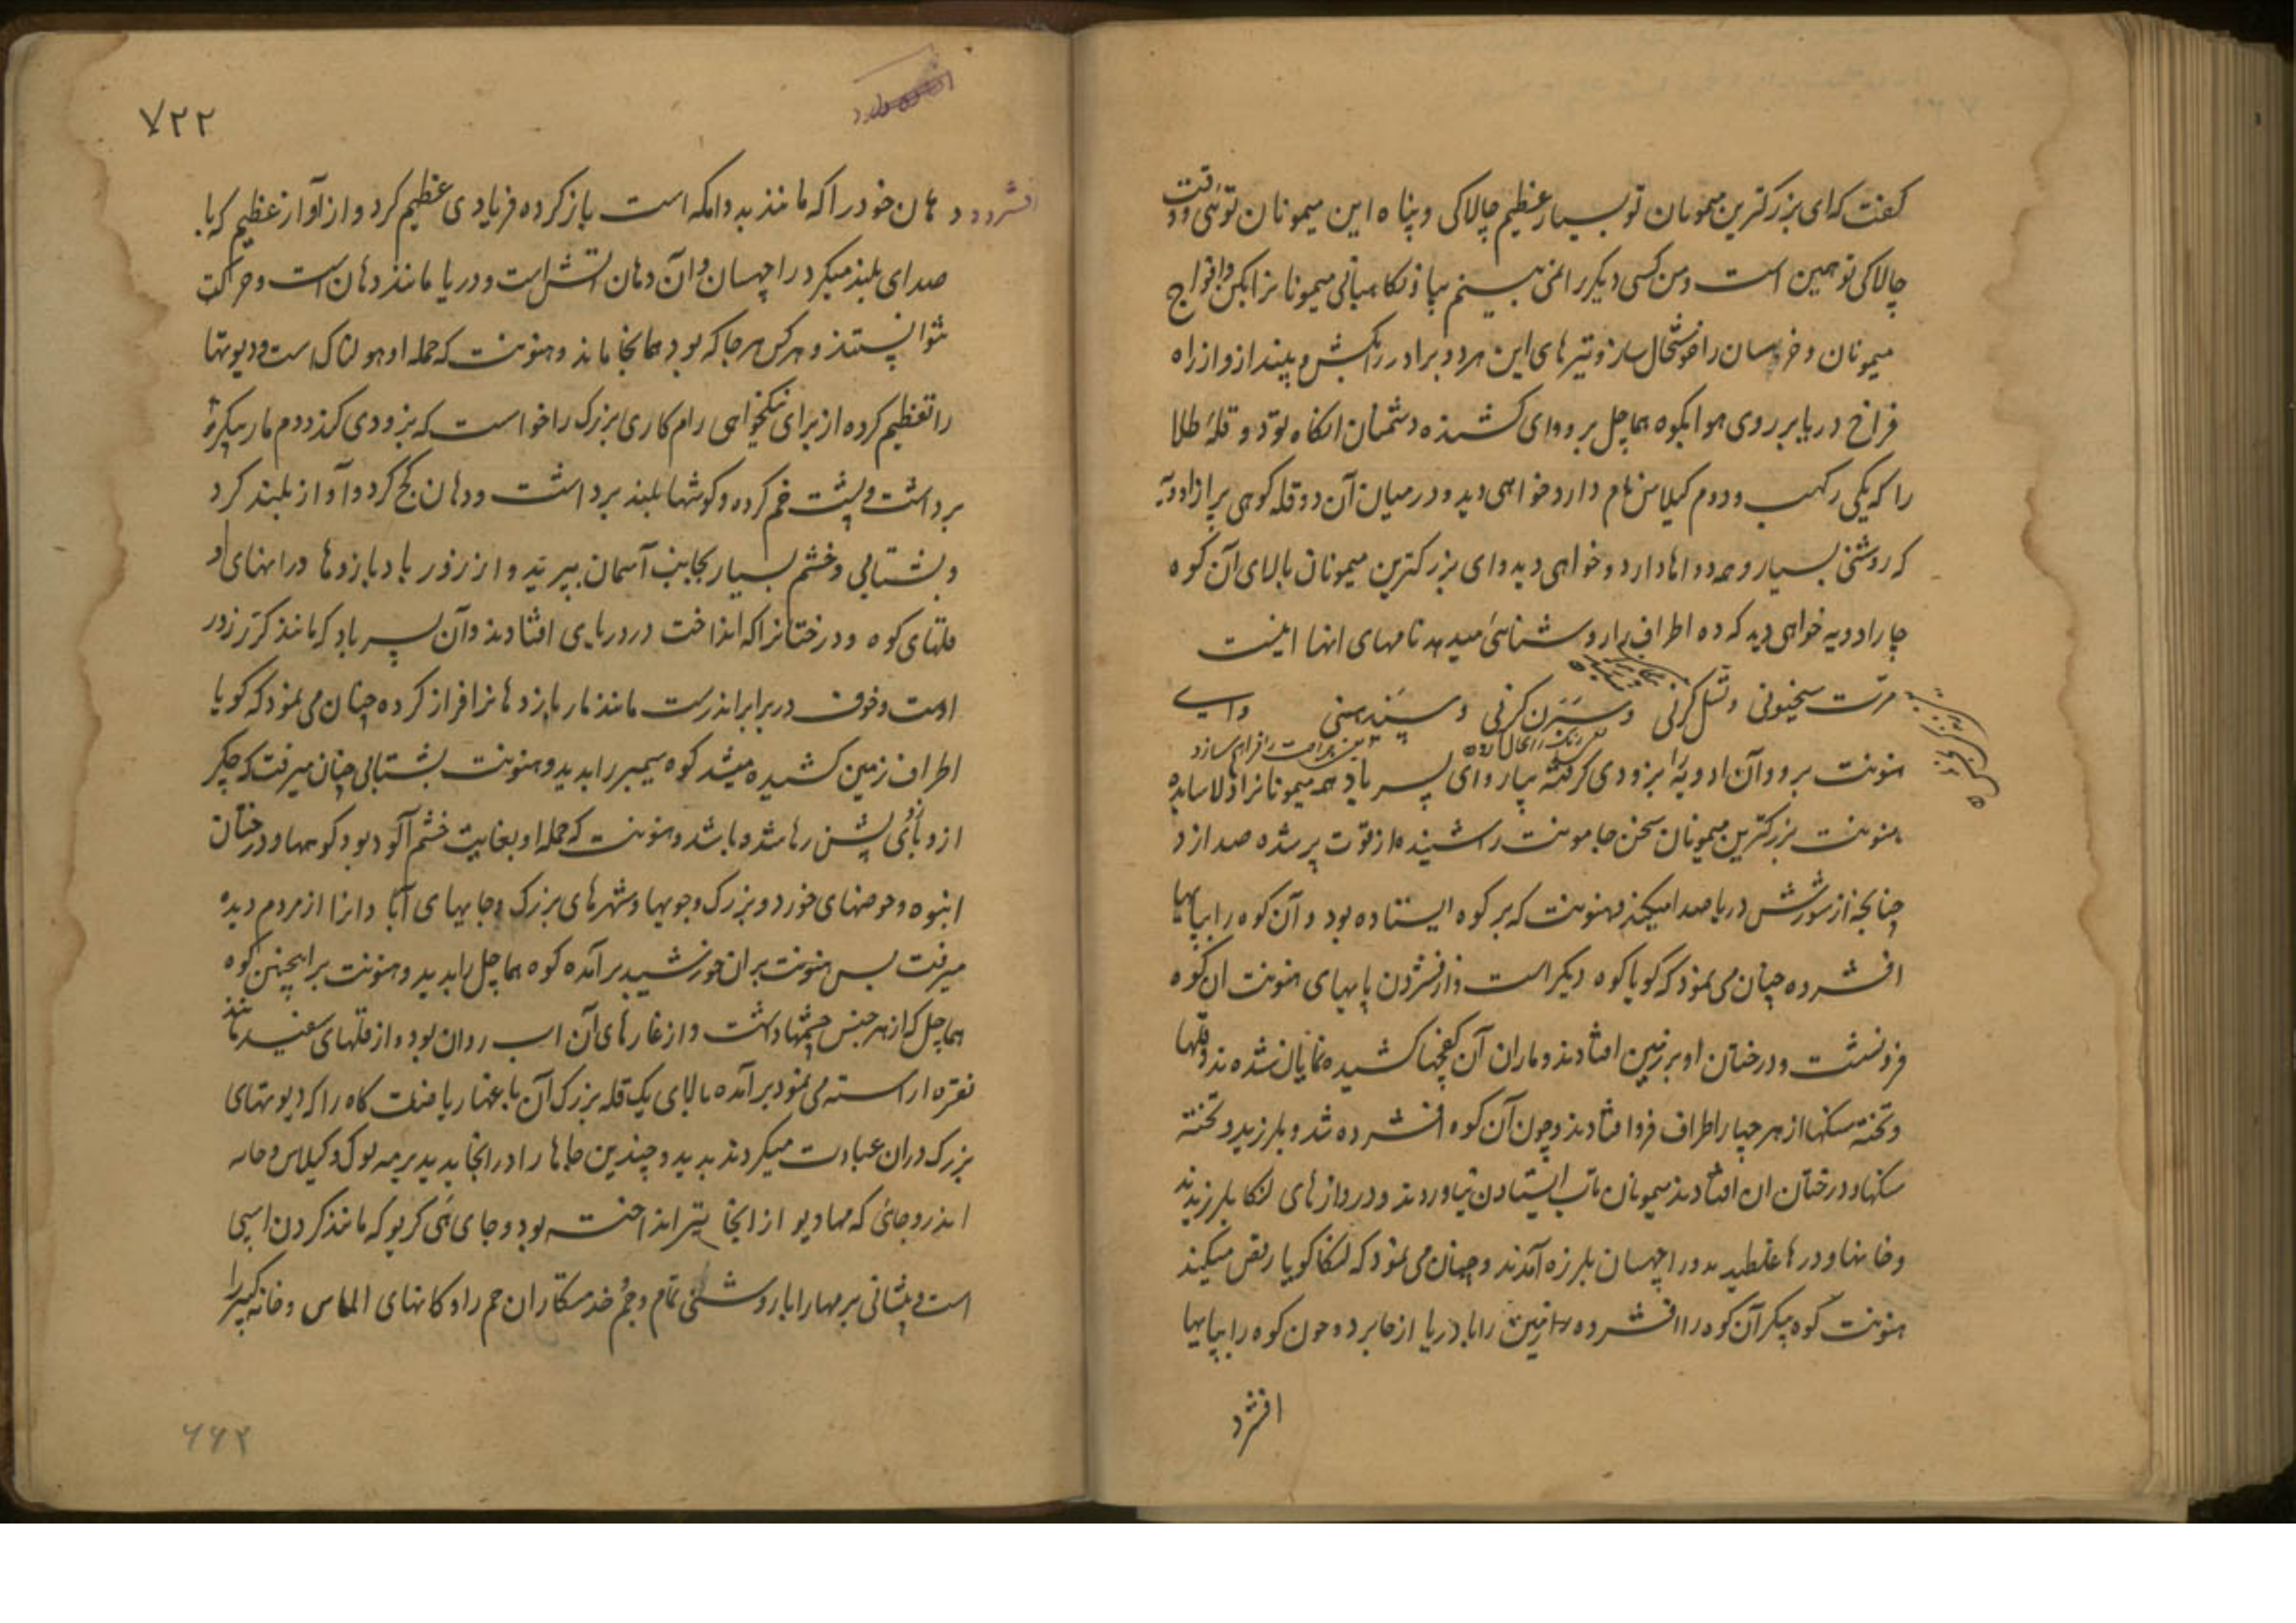 گفت که ای بزرگترین میمونان تو بسیار عظیم چالاکی و پناه این میمونان توئی وقت
چالاکی تو همین است و من کسی دیگر را نمی بینم بیا و نگاهبانی میمونانرا بکن و افواج
میمونان و خرسان را خوشحال ساز و تیرهای این هر دو برادر را بکش و بینداز و از راه
فراخ دریا بر روی هوا بکوه هماچل برو و ای کشنده دشمنان انگاه تو دو قله طلا
را که یکی رکهب و دوم کیلاس نام دارد خواهی دید و در میان آن دو قله کوهی پر از ادویه
که روشنی بسیار و همه دواها دارد و خواهی دید و ای بزرگترین میمونان بالای آن کوه
چار ادویه خواهی دید که ده اطراف را روشنائی میدهد نامهای انها اینست
مرت سنجیونی و شل کرنی و سبرن کرنی و سندهنی و ای
هنونت برو و آن ادویه را بزودی گرفته بیار و ای پسر باد همه میمونانرا دلاسا بده
هنونت بزرگترین میمونان سخن جامونت را شنیده از قوت پر شده صدا زد
چنانچه از شورش دریا صدا میکند و هنونت که بر کوه ایستاده بود و آن کوه را بپایها
افشرده چنان می نمود که گویا کوه دیگر است و از فشردن پایهای هنونت ان کوه
فرو نشست و درختان او بر زمین افتادند و ماران آن کفچها کشیده نمایان شدند و قلها
و تخته سنگها از هر چهار اطراف فرو افتادند و چون آن کوه افشرده شد و بلرزید و تخته
سنگها و درختان ان افتادند میمونان تاب ایستادن نیاوردند و دروازهای لنکا بلرزیدند
و خانها و درها غلطیدند و راچهسان بلرزه آمدند و چنان می نمود که لنکا گویا رقص میکند
هنونت کوه پیکر آن کوه را افشرده زمین را با دریا از جا برد و چون کوه را بپایها
افشرد
۷۲۲
افشرد و دهان خود را که مانند بدوامکه است باز کرده فریادی عظیم کرد و از آواز عظیم که با
صدای بلند میکرد راچهسان و آن دهان آتش است و دریا مانند دهان است و حرکت
نتوانستند و هر کس هر جا که بود همانجا ماند و هنونت که حمله او هولناک است و دیوتها
را تعظیم کرده از برای نیکخواهی رام کاری بزرگ را خواست که بزودی کند و دم مار پیکر
برداشت و پشت خم کرده و گوشها بلند برداشت و دهان کج کرد و آواز بلند کرد
و بشتابی و خشم بسیار بجانب آسمان بپرید و از زور باد بازوها و رانهای او
قلهای کوه و درختانرا که انداخت در دریا افتادند و آن پسر باد که مانند گرر زور
اوست و خوف در برابر اندرست مانند مار بازوها نرا فراز کرده چنان می نمود که گویا
اطراف زمین کشیده میشد کوه سیمبر را بدید و هنونت بشتابی چنان میرفت که چکر
از دبازوی بشن رها شده باشد و هنونت که حمله او بغایت خشم آلود بود کوهها و درختان
انبوه و حوضهای خورد و بزرگ و جویها و شهرهای بزرگ و جایهای آبادانرا از مردم دیده
میرفت پس هنونت بر ان خورشید برآمده کوه هماچل را بدید و هنونت بر اینچنین کوه
هماچل که از هر جنس چشمها داشت و از غارهای آن اب روان بود و از قلهای سفید مانند
نقره اراسته می نمود برآمده بالای یک قله بزرگ آن باغها ریاضت گاه را که دیوتهای
بزرگ دران عبادت میکردند بدید و چندین جاها را در انجا بدید برمه لوک و کیلاس و خانه
اندر و جائی که مهادیو از انجا تیر انداخته بود و جای هی گریو که مانند گردن اسپی
است و پیشانی برمها را با روشنی تمام و جم خدمتکاران جم را و کانهای الماس و خانه کبیر را
۶۶۲